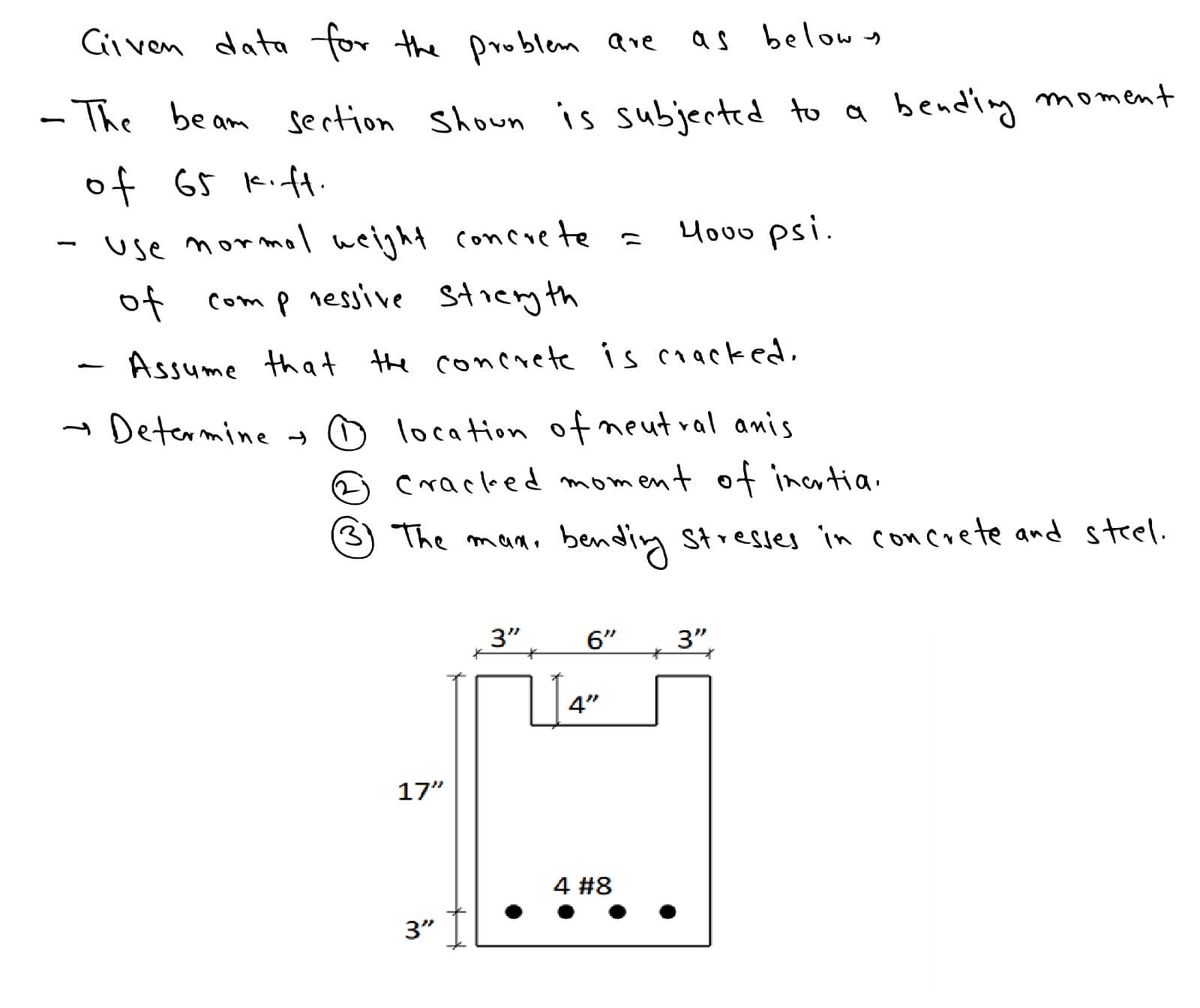 Given data for the problem are as below →
- The beam section shown is subjected to a bending moment
of 65 k.ft.
- Use normal weight concrete = 4000 psi.
of compressive strength
- Assume that the concrete is cracked.
→ Determine → ① location of neutral axis
② cracked moment of inertia.
③ The max. bending stresses in concrete and steel.
3” 6” 3”
4”
17”
4 #8
3”